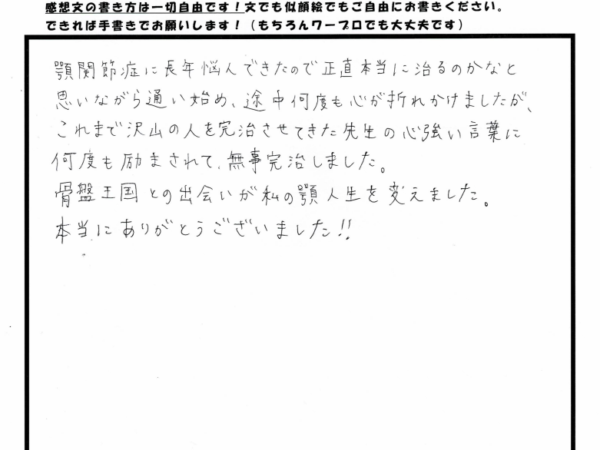 感想文の書き方は一切自由です！文でも似顔絵でもご自由にお書きください。
できれば手書きでお願いします！（もちろんワープロでも大丈夫です）
顎関節症に長年悩んできたので正直本当に治るのかなと
思いながら通い始め、途中何度も心が折れかけましたが、
これまで沢山の人を完治させてきた先生の心強い言葉に
何度も励まされて、無事完治しました。
骨盤王国との出会いが私の顎人生を変えました。
本当にありがとうございました!!